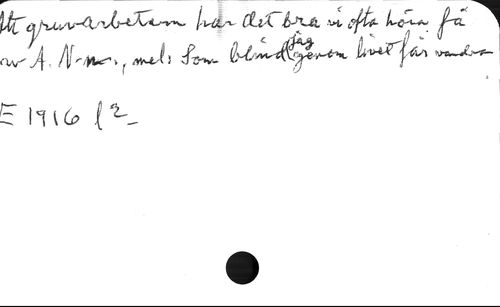 Att gruvarbetarn har det bra vi ofta höra få
av A. N-m., mel: Som blind jag genom livet får vandra
E 1916 l 2